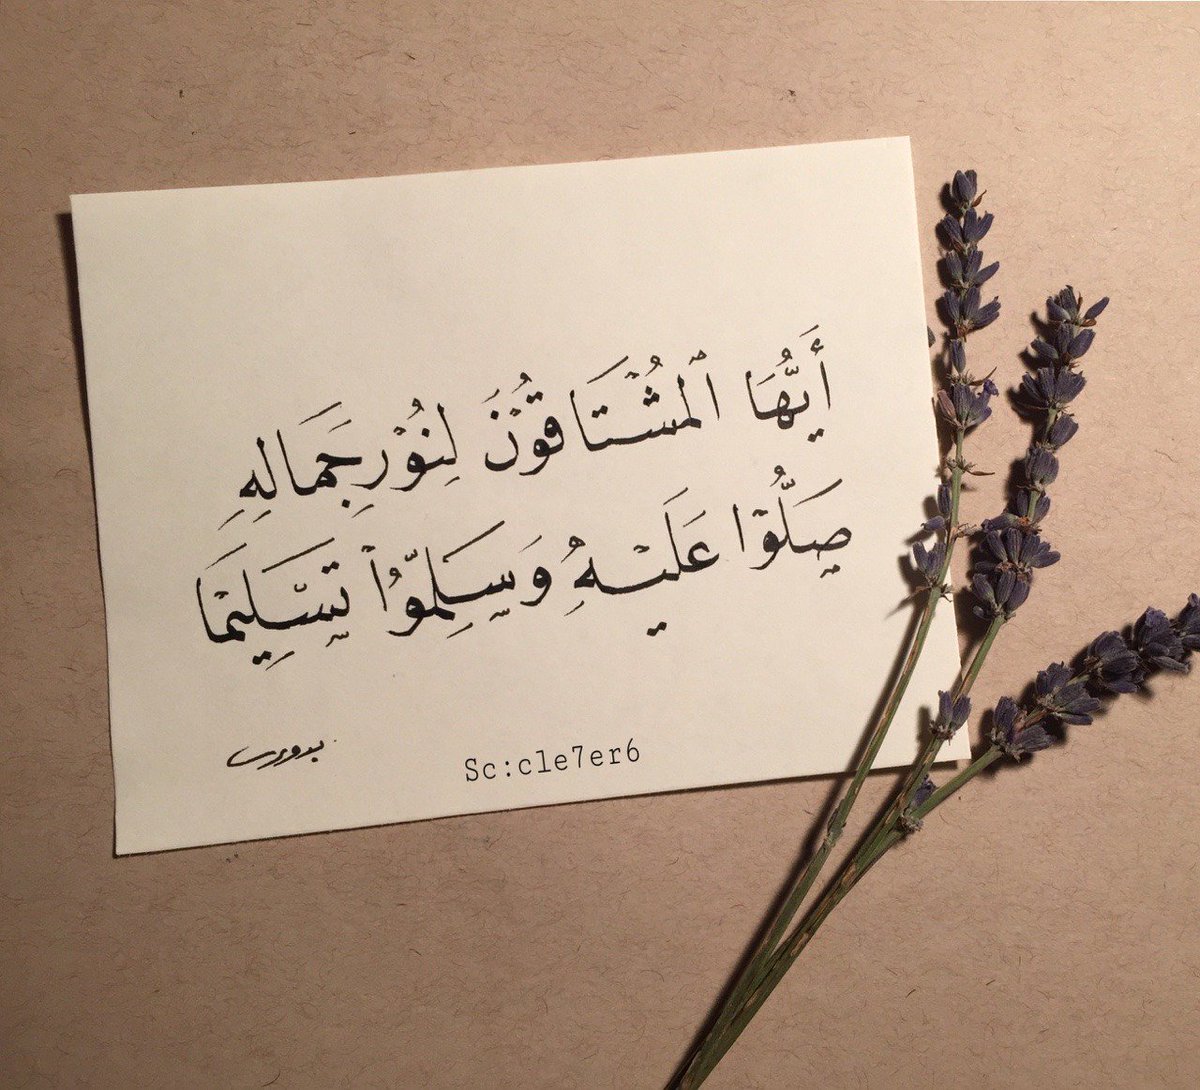 أَيُّهَا ٱلمُشْتَاقُوْنَ لِنُوْرِ جَمَالِهِ
صَلُّوْا عَلَيْهِ وَسَلِّمُوْا تَسْلِيْمَا
Sc:cle7er6